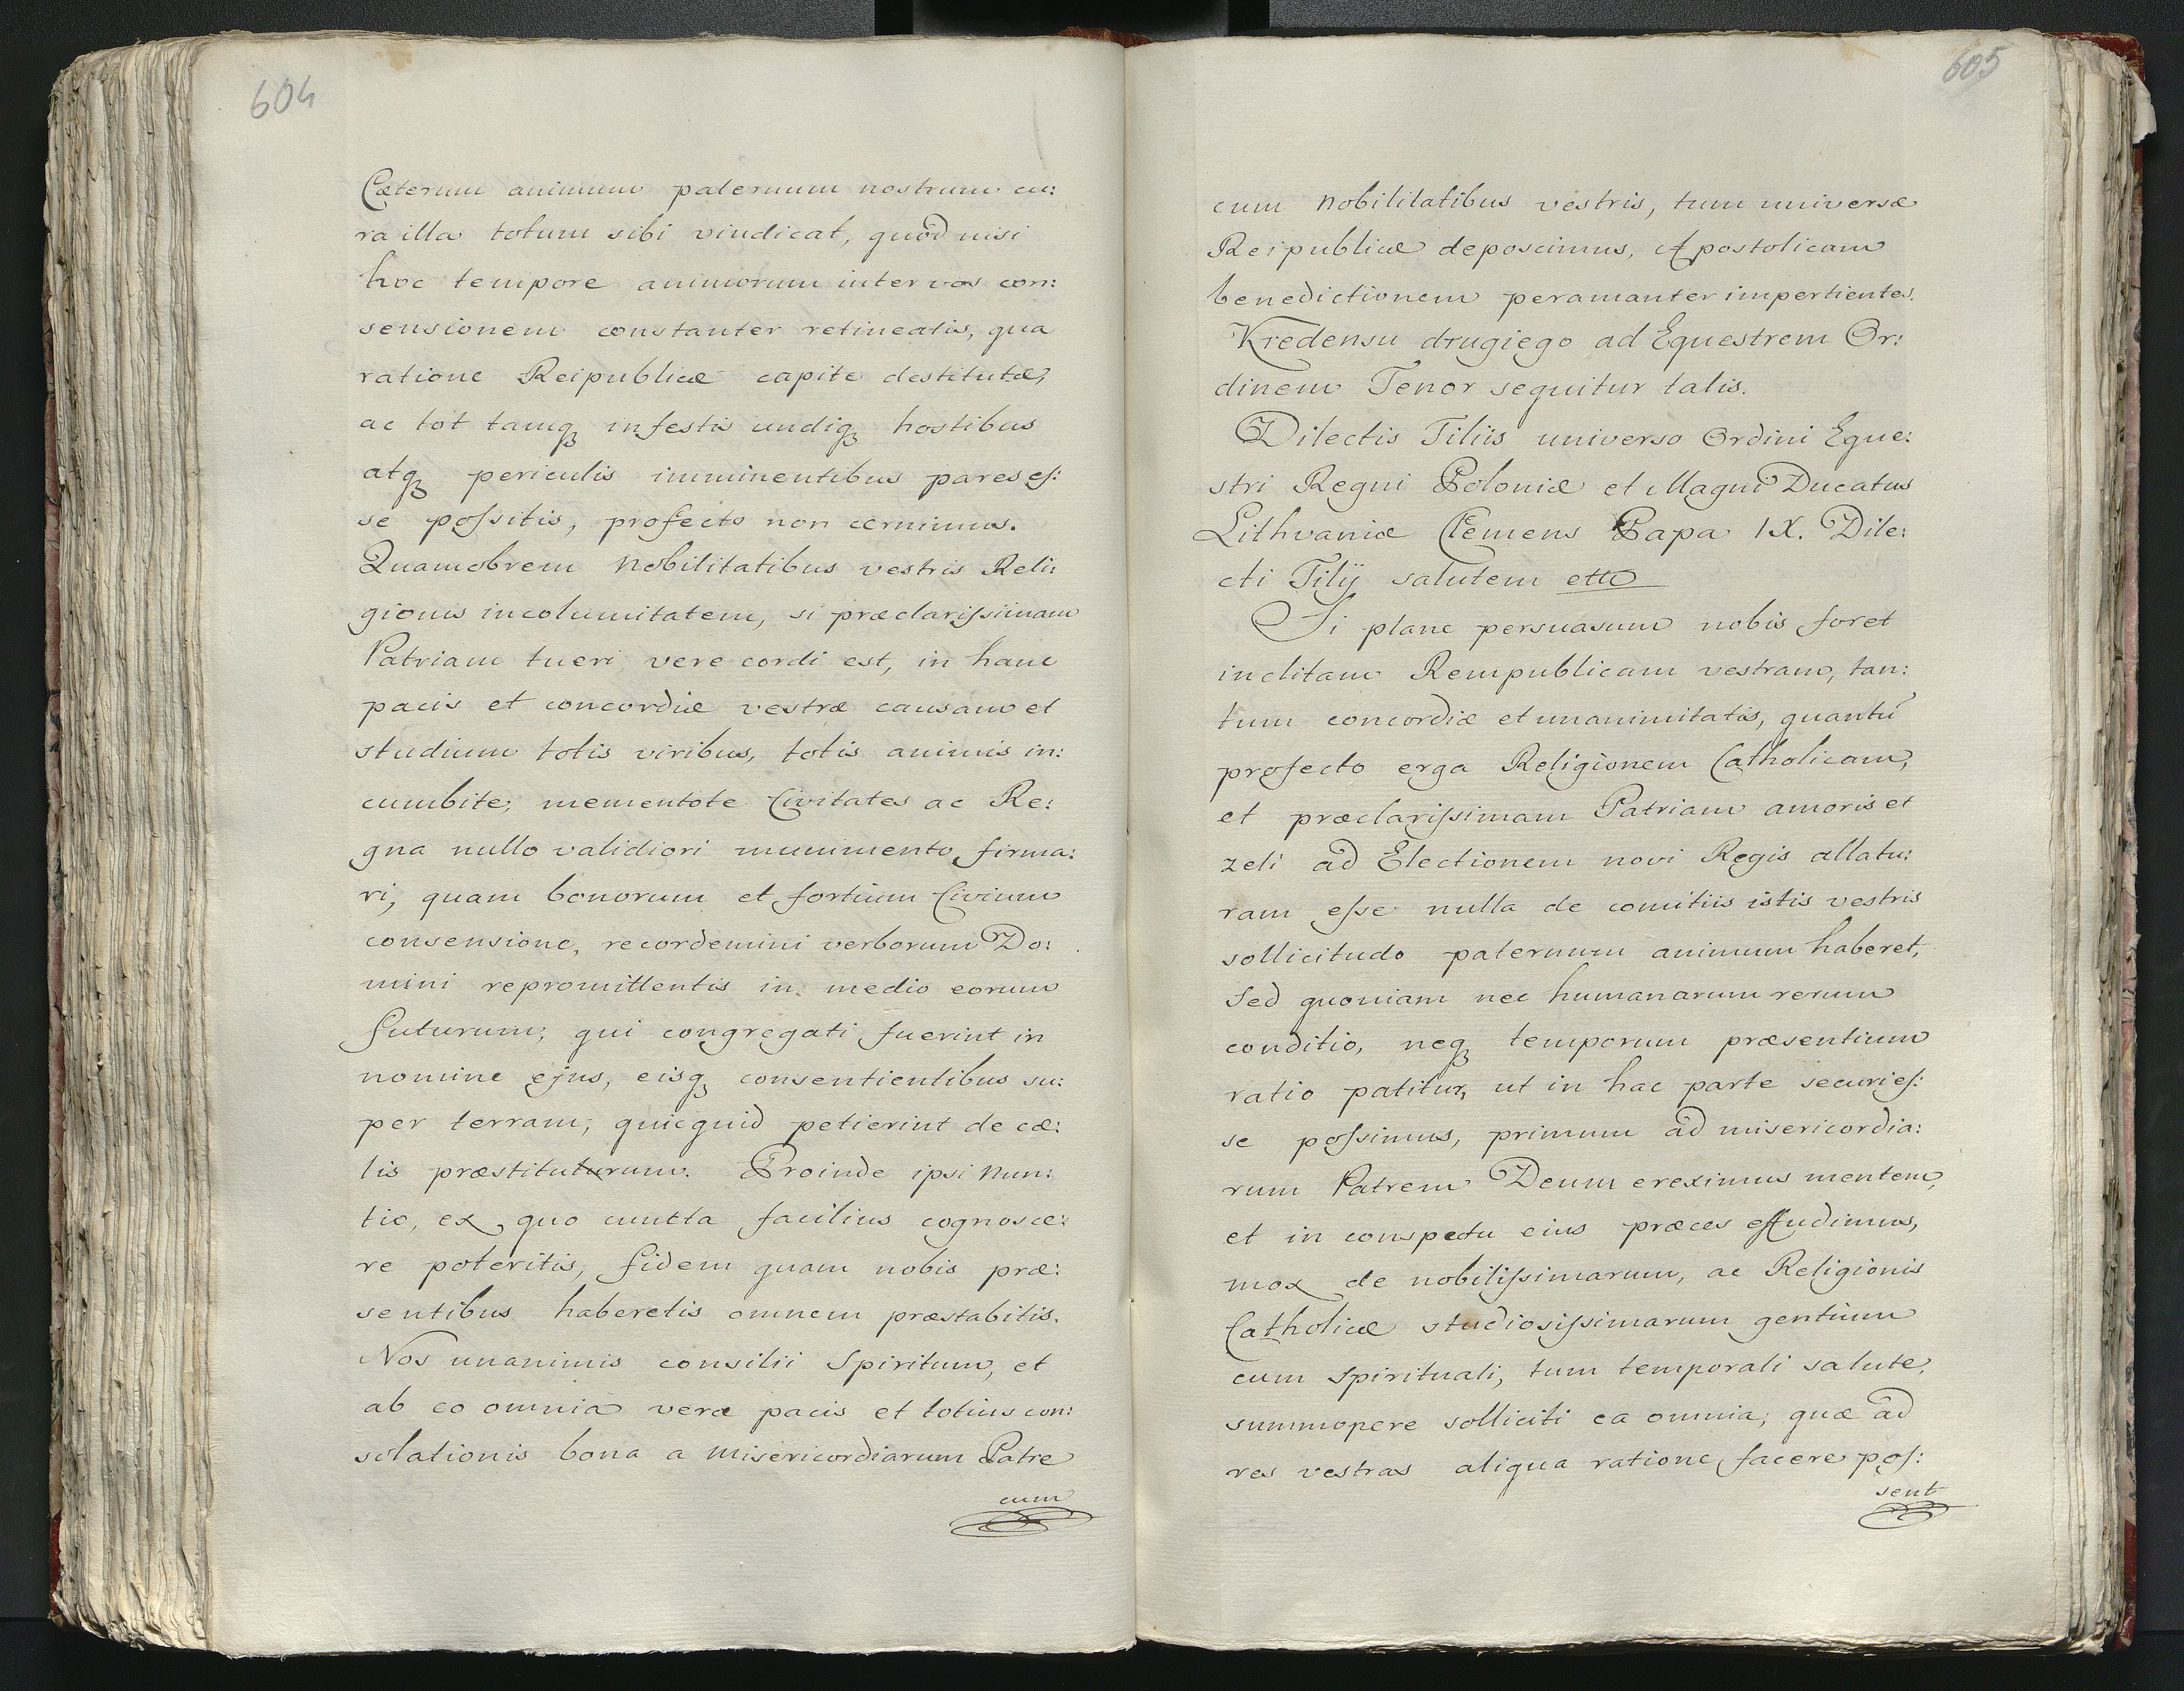 604
Cæterum animum paternum nostrum cu:
ra illa totum sibi vindicat, quòd nisi
hoc tempore animorum inter vos con:
sensionem constanter retineatis, qua
ratione Reipublicæ capite destitutæ,
ac tot tamq, infestis undiq, hostibus
atq, periculis imminentibus pares eſ:
se poſsitis, profecto non cernimus.
Quamobrem Nobilitatibus vestris Reli:
gionis incolumitatem, si præclariſsimam
Patriam tueri vere cordi est, in hanc
pacis et concordiæ vestræ causam et
studium totis viribus, totis animis in:
cumbite, mementote Civitates ac Re:
gna nullo validiori munimento firma:
ri, quam bonorum et fortium Civium
consensione, recordemini verborum Do:
mini repromittentis in medio eorum
futurum, qui congregati fuerint in
nomine ejus, eisq, consentientibus su:
per terram, quicquid petierint de cæ:
lis præstituturum. Proinde ipsi Nun:
tio, ex quo cuncta facilius cognosce:
re poteritis, fidem quam nobis præ:
sentibus haberetis omnem præstabitis.
Nos unanimis consilii Spiritum, et
ab eo omnia veræ pacis et totius con:
solationis bona a Misericordiarum Patre
cum
605
cum Nobilitatibus vestris, tum universæ
Reipublicæ deposcimus, Apostolicam
benedictionem peramanter impertientes.
Kredensu drugiego ad Equestrem Or:
dinem Tenor sequitur talis.
Dilectis Filiis universo Ordini Eque:
stri Regni Poloniæ et Magni Ducatus
Lithvaniæ Clemens Papa IX. Dile:
cti Filij salutem ettc
Si plane persuasum nobis foret
inclitam Rempublicam vestram, tan:
tum concordiæ et unanimitatis, quantũ
profecto erga Religionem Catholicam,
et præclariſsimam Patriam amoris et
zeli ad Electionem novi Regis allatu:
ram eſse nulla de comitiis istis vestris
sollicitudo paternum animum haberet,
Sed quoniam nec humanarum rerum
conditio, neq, temporum præsentium
ratio patitur, ut in hac parte securi eſ:
se poſsimus, primum ad misericordia:
rum Patrem Deum ereximus mentem,
et in conspectu eius præces effudimus,
mox de nobiliſsimarum, ac Religionis
Catholicæ studiosiſsimarum gentium
cum Spirituali, tum temporali salute,
summopere solliciti ea omnia, quæ ad
res vestras aliqua ratione facere poſ:
sent